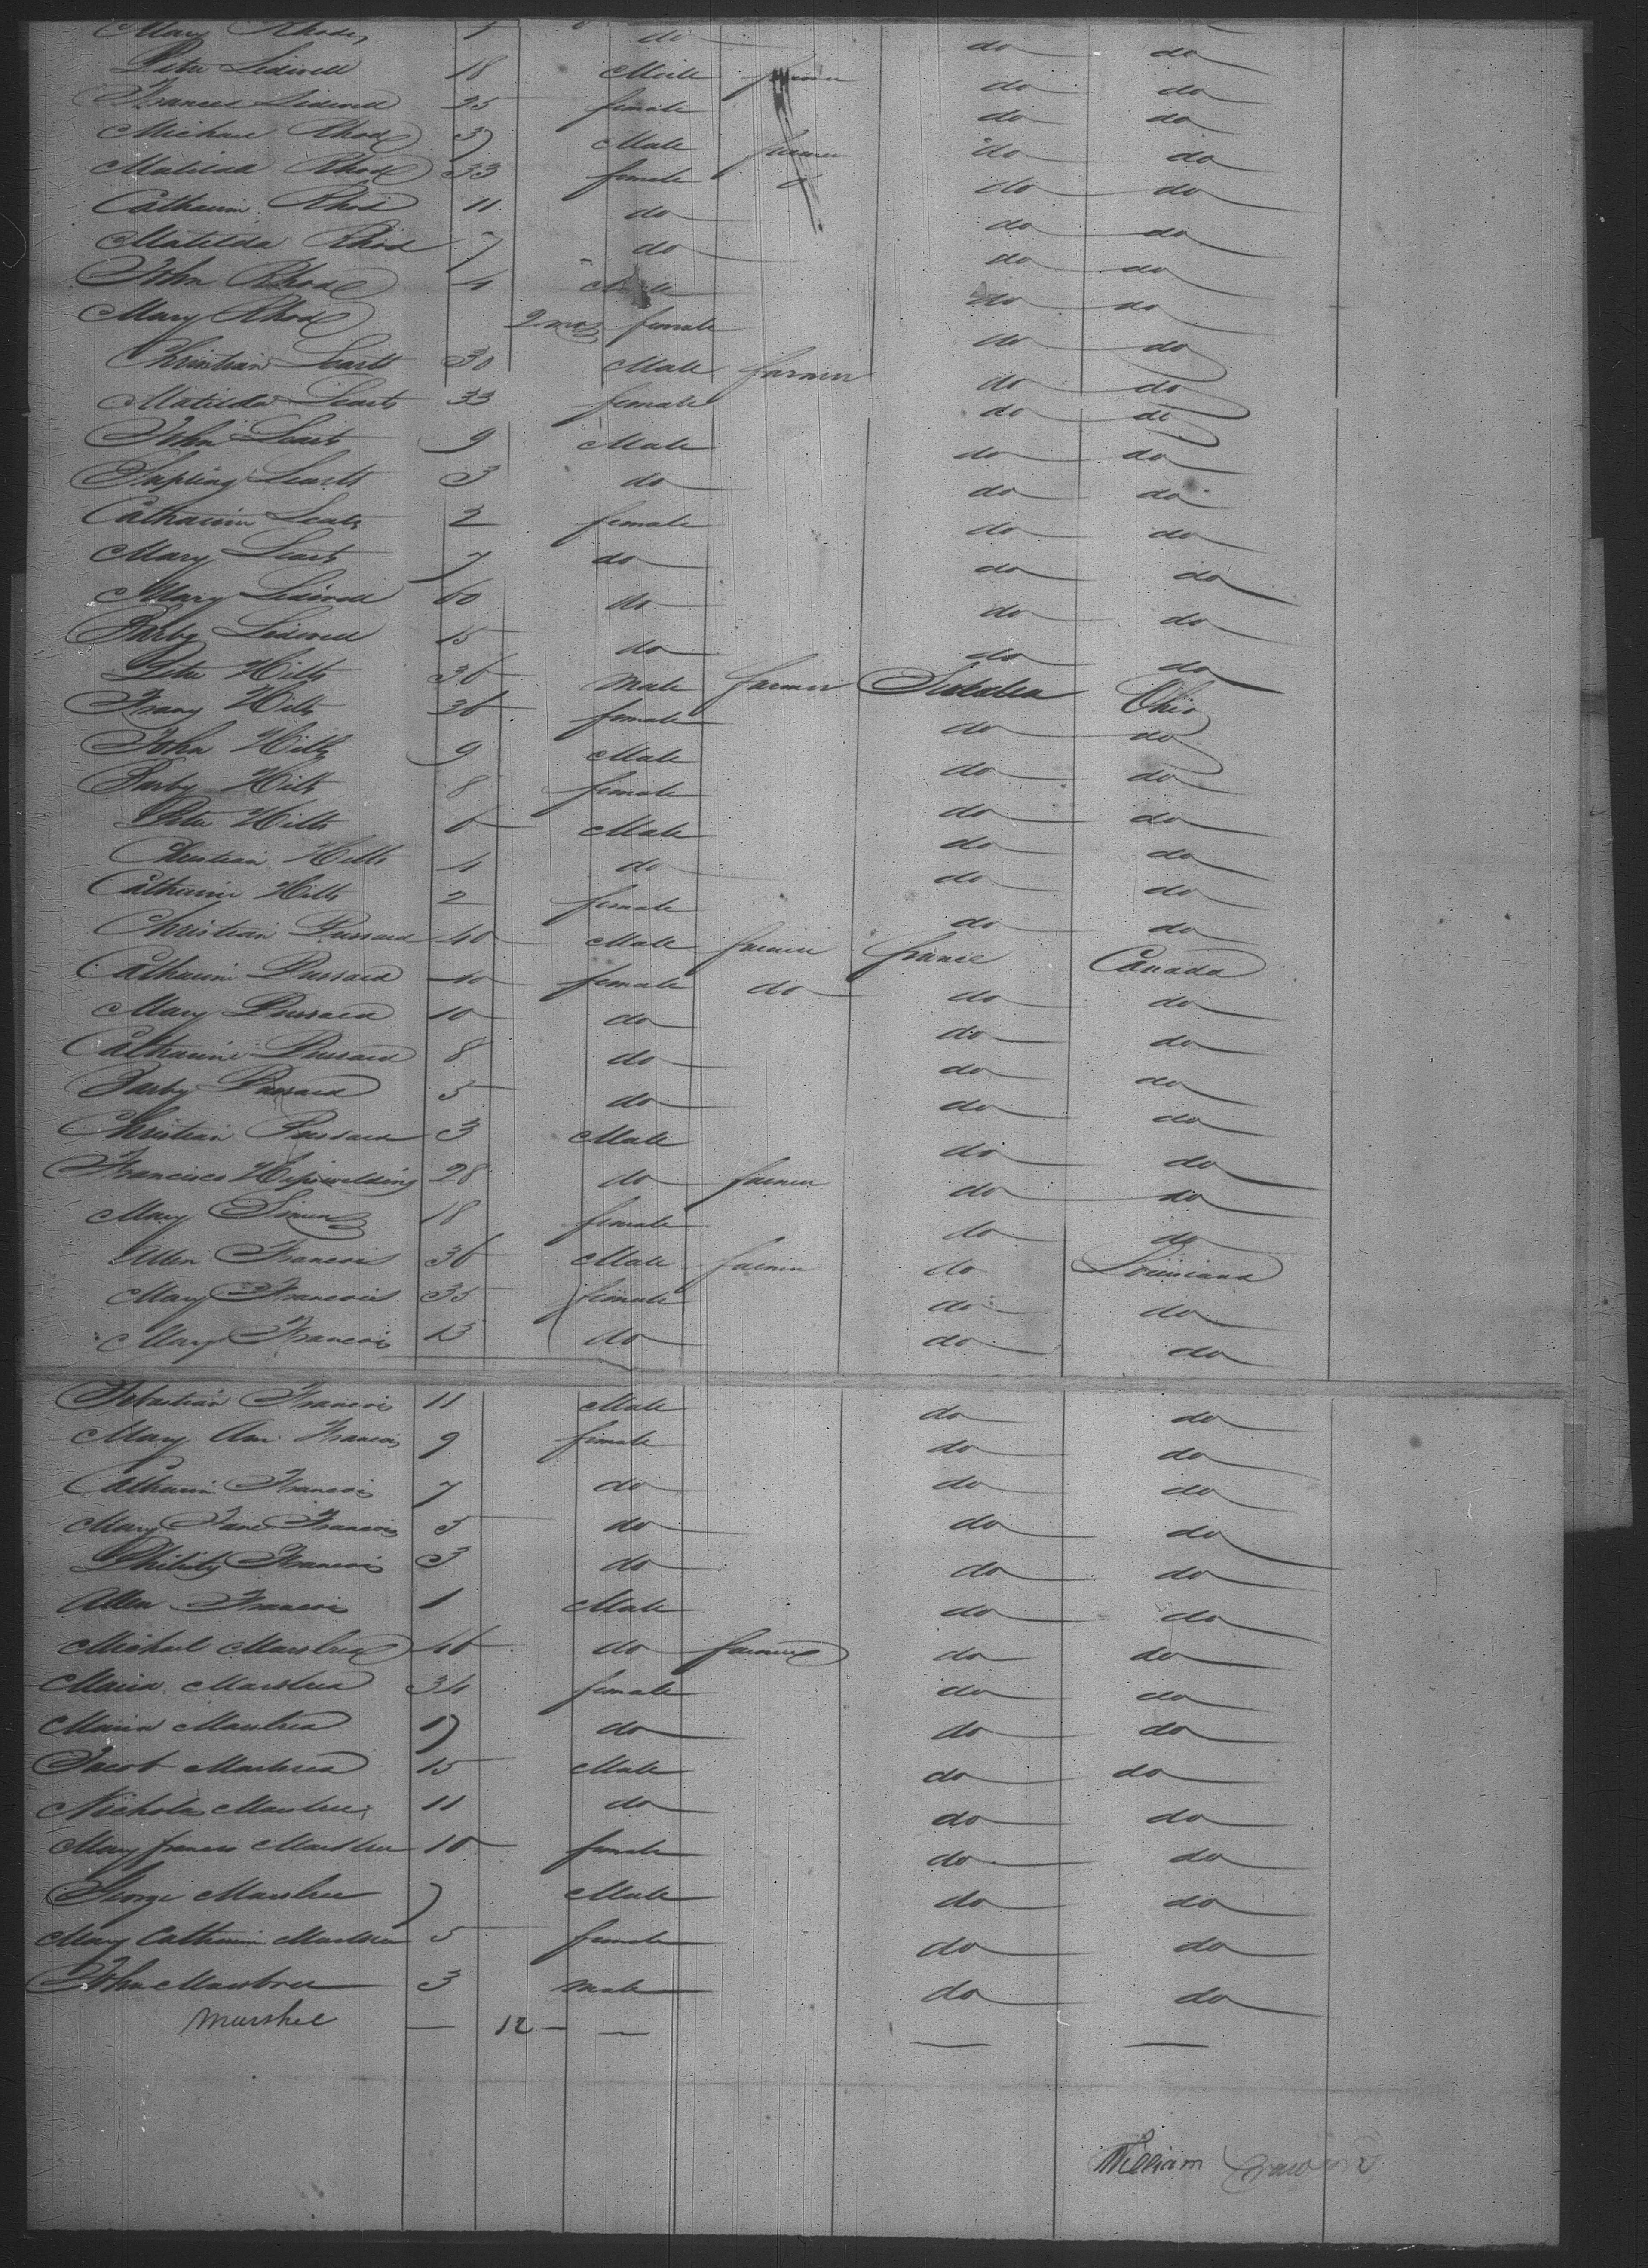 Mary Rhode 1 do do do
Peter Lidwell 18 Male farmer do do
Frances Lidwell 25 female do do
Michael Rhode 37 Male farmer do do
Matilda Rhode 33 female do do
Catharin Rhode 11 do do do
Matilda Rhode 7 do do do
John Rhode 4 Male do do
Mary Rhode 2 mos female do do
Christian Learts 30 Male farmer do do
Matilda Learts 33 female do do
John Learts 9 Male do do
Learts 3 do do do
Catharin Learts 2 female do do
Mary Learts 7 do do do
Mary Lidwell 60 do do do
Barby Lidwell 15 do do do
Peter Hilts 36 male farmer Ohio
Frany Hilts 26 female do do
John Hilts 9 Male do do
Barby Hilts 8 female do do
Peter Hilts 6 Male do do
Christian Hilts 4 do do do
Catharine Hilts 2 female do do
Christian 40 Male farmer france Canada
Catharin 40 female do do do
Mary 10 do do do
Catharine 8 do do do
Barby 5 do do do
Christian 3 Male do do
Francisco 28 do farmer do do
Mary Simon 18 female do do
Allen Francois 36 Male farmer do Louisiana
Mary Francois 35 female do do
Mary Francois 13 do do do
Sebastian Francois 11 Male do do
Mary Ann Francois 9 female do do
Catharin Francois 7 do do do
Mary Jane Francois 5 do do do
Francois 3 do do do
Allen Francois 1 Male do do
Michael 46 do farmer do do
Maria 34 female do do
Maria 17 do do do
Jacob 15 Male do do
Nicholas 11 do do do
Mary frances 10 female do do
George 7 Male do do
Mary Catharin 5 female do do
John 3 male do do
Marshel — 12 — — — —
William